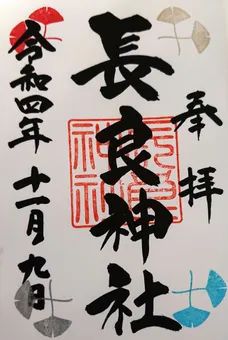 奉拝
長良神社
長良神社
令和四年十一月九日